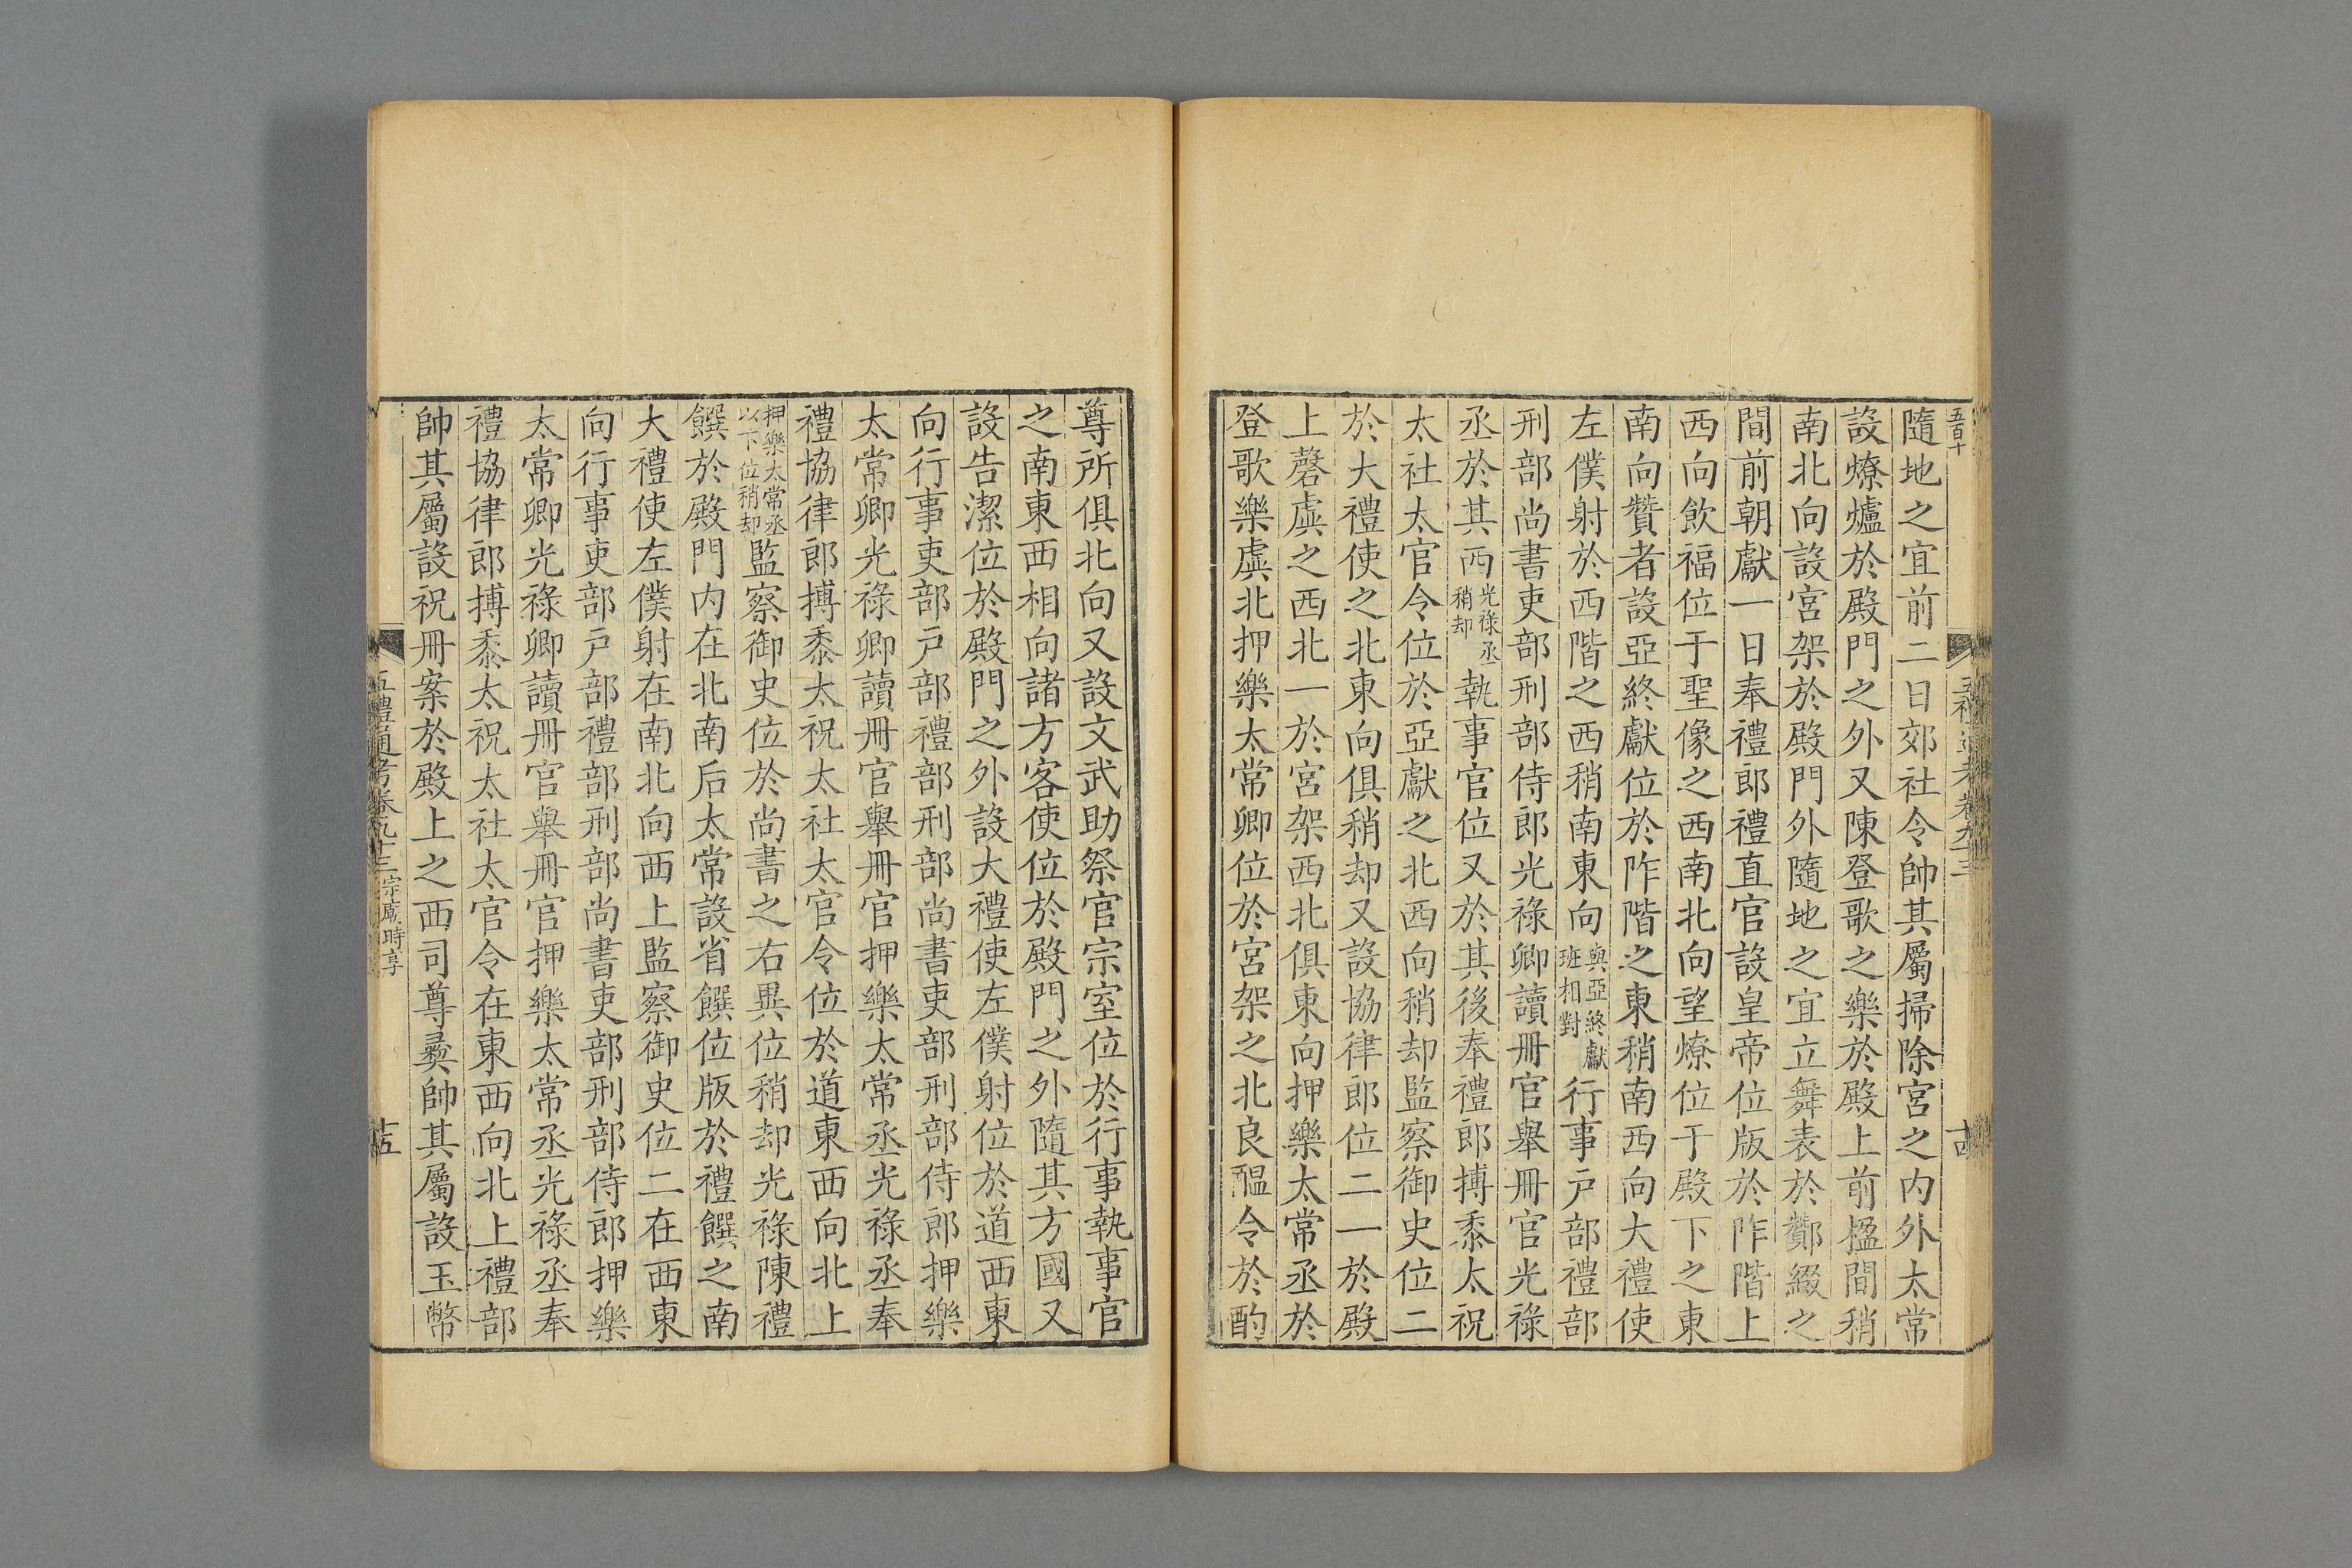 五百十
五禮通考卷九十三
十四
隨地之宜前二日郊社令帥其屬掃除宮之内外太常
設燎爐於殿門之外又陳登歌之樂於殿上前楹間稍
南北向設宮架於殿門外隨地之宜立舞表於酇綴之
間前朝獻一日奉禮郎禮直官設皇帝位版於阼階上
西向飲福位于聖像之西南北向望燎位于殿下之東
南向贊者設亞終獻位於阼階之東稍南西向大禮使
左僕射於西階之西稍南東向與亞終獻班相對行事戸部禮部
刑部尚書吏部刑部侍郎光祿卿讀冊官舉冊官光祿
丞於其西光祿丞稍却執事官位又於其後奉禮郎搏黍太祝
太社太官令位於亞獻之北西向稍却監察御史位二
於大禮使之北東向俱稍却又設協律郎位二一於殿
上磬虡之西北一於宮架西北俱東向押樂太常丞於
登歌樂虡北押樂太常卿位於宮架之北良醞令於酌
尊所俱北向又設文武助祭官宗室位於行事執事官
之南東西相向諸方客使位於殿門之外隨其方國又
設告潔位於殿門之外設大禮使左僕射位於道西東
向行事吏部戸部禮部刑部尚書吏部刑部侍郎押樂
太常卿光祿卿讀冊官舉冊官押樂太常丞光祿丞奉
禮協律郎搏黍太祝太社太官令位於道東西向北上
押樂太常丞以下位稍却監察御史位於尚書之右異位稍却光祿陳禮
饌於殿門内在北南后太常設省饌位版於禮饌之南
大禮使左僕射在南北向西上監察御史位二在西東
向行事吏部戸部禮部刑部尚書吏部刑部侍郎押樂
太常卿光祿卿讀冊官舉冊官押樂太常丞光祿丞奉
禮協律郎搏黍太祝太社太官令在東西向北上禮部
帥其屬設祝冊案於殿上之西司尊彝帥其屬設玉幣
五禮通考卷九十三 宗廟時享
十五